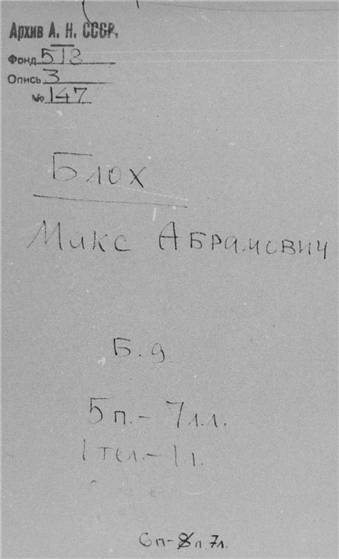 Архив А. Н. СССР.
Фонд 518
Опись 3
№ 147
Блох
Макс Абрамович
Б.д.
5п.- 7лл.
1тел.-1л.
6п- 7л.